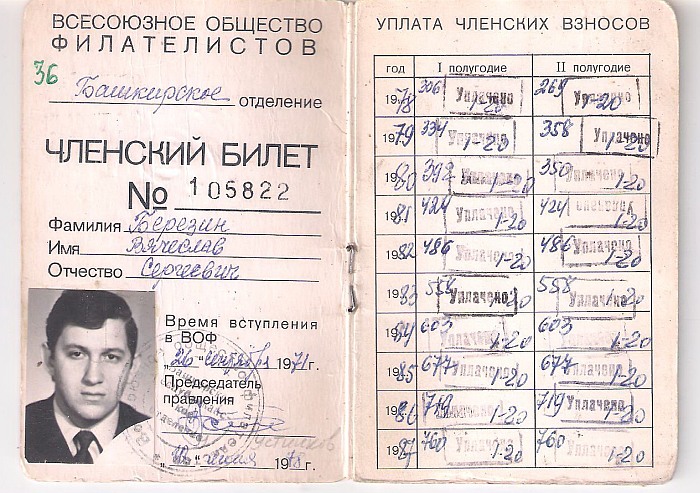 ВСЕСОЮЗНОЕ ОБЩЕСТВО
ФИЛАТЕЛИСТОВ
36
Башкирское отделение
ЧЛЕНСКИЙ БИЛЕТ
№ 105822
Фамилия Березин
Имя Вячеслав
Отчество Сергеевич
Время вступления
в ВОФ
„26" сентября 1971г.
Председатель
правления
1978г.
УПЛАТА ЧЛЕНСКИХ ВЗНОСОВ
год I полугодие II полугодие
1978 306 Уплачено 1-20 269 Уплачено 1-20
1979 334 Уплачено 1-20 358 Уплачено 1-20
1980 392 Уплачено 1-20 350 Уплачено 1-20
1981 424 Уплачено 1-20 424 Уплачено 1-20
1982 486 Уплачено 1-20 486 Уплачено 1-20
1983 558 Уплачено 1-20 558 Уплачено 1-20
1984 603 Уплачено 1-20 603 Уплачено 1-20
1985 677 Уплачено 1-20 677 Уплачено 1-20
1986 719 Уплачено 1-20 719 Уплачено 1-20
1987 760 Уплачено 1-20 760 Уплачено 1-20